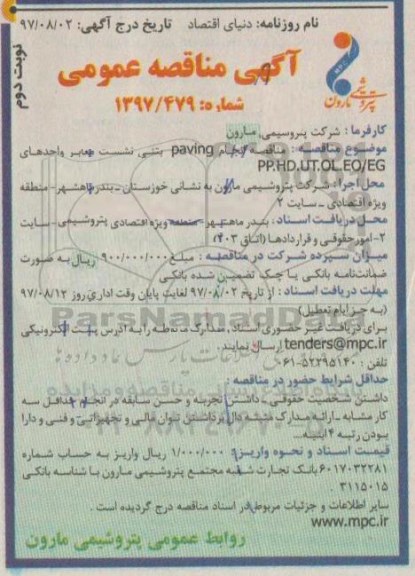 نام روزنامه: دنیای اقتصاد تاریخ درج آگهی: ۹۷/۰۸/۰۲
نوبت دوم
آگهی مناقصه عمومی
شماره: ۱۳۹۷/۴۷۹
پتروشیمی مارون
کارفرما: شرکت پتروسیمی مارون
موضوع مناقصه: مناقصه انجام paving بتنی نشست معابر واحدهای
PP.HD.UT.OL.EO/EG
محل اجرا: شرکت پتروشیمی مارون به نشانی خوزستان - بندر ماهشهر - منطقه
ویژه اقتصادی - سایت ۲
محل دریافت اسناد: بندر ماهشهر - منطقه ویژه اقتصادی پتروشیمی - سایت
۲- امور حقوقی و قراردادها (اتاق ۴۰۳)
میزان سپرده شرکت در مناقصه: مبلغ ۹۰۰/۰۰۰/۰۰۰ ریال به صورت
ضمانت‌نامه بانکی یا چک تضمین شده بانکی
مهلت دریافت اسناد: از تاریخ ۹۷/۰۸/۰۲ لغایت پایان وقت اداری روز ۹۷/۰۸/۱۲
(به جز ایام تعطیل)
برای دریافت غیر حضوری اسناد، مدارک مذکور را به آدرس پست الکترونیکی
tenders@mpc.ir ارسال نمایند.
تلفن: ۰۶۱-۵۲۲۹۵۱۴۰
حداقل شرایط حضور در مناقصه:
داشتن شخصیت حقوقی - داشتن تجربه و حسن سابقه در انجام حداقل سه
کار مشابه - ارائه مدارک مثبته دال بر داشتن توان مالی و تجهیزاتی و فنی و دارا
بودن رتبه ۴ ابنیه...
قیمت اسناد و نحوه واریز: ۱/۰۰۰/۰۰۰ ریال واریز به حساب شماره
۶۰۱۷۰۳۲۲۸۱ بانک تجارت شعبه مجتمع پتروشیمی مارون با شناسه بانکی
۳۱۱۵۰۱۵.
سایر اطلاعات و جزئیات مربوط در اسناد مناقصه درج گردیده است.
www.mpc.ir
روابط عمومی پتروشیمی مارون
ParsNamadData